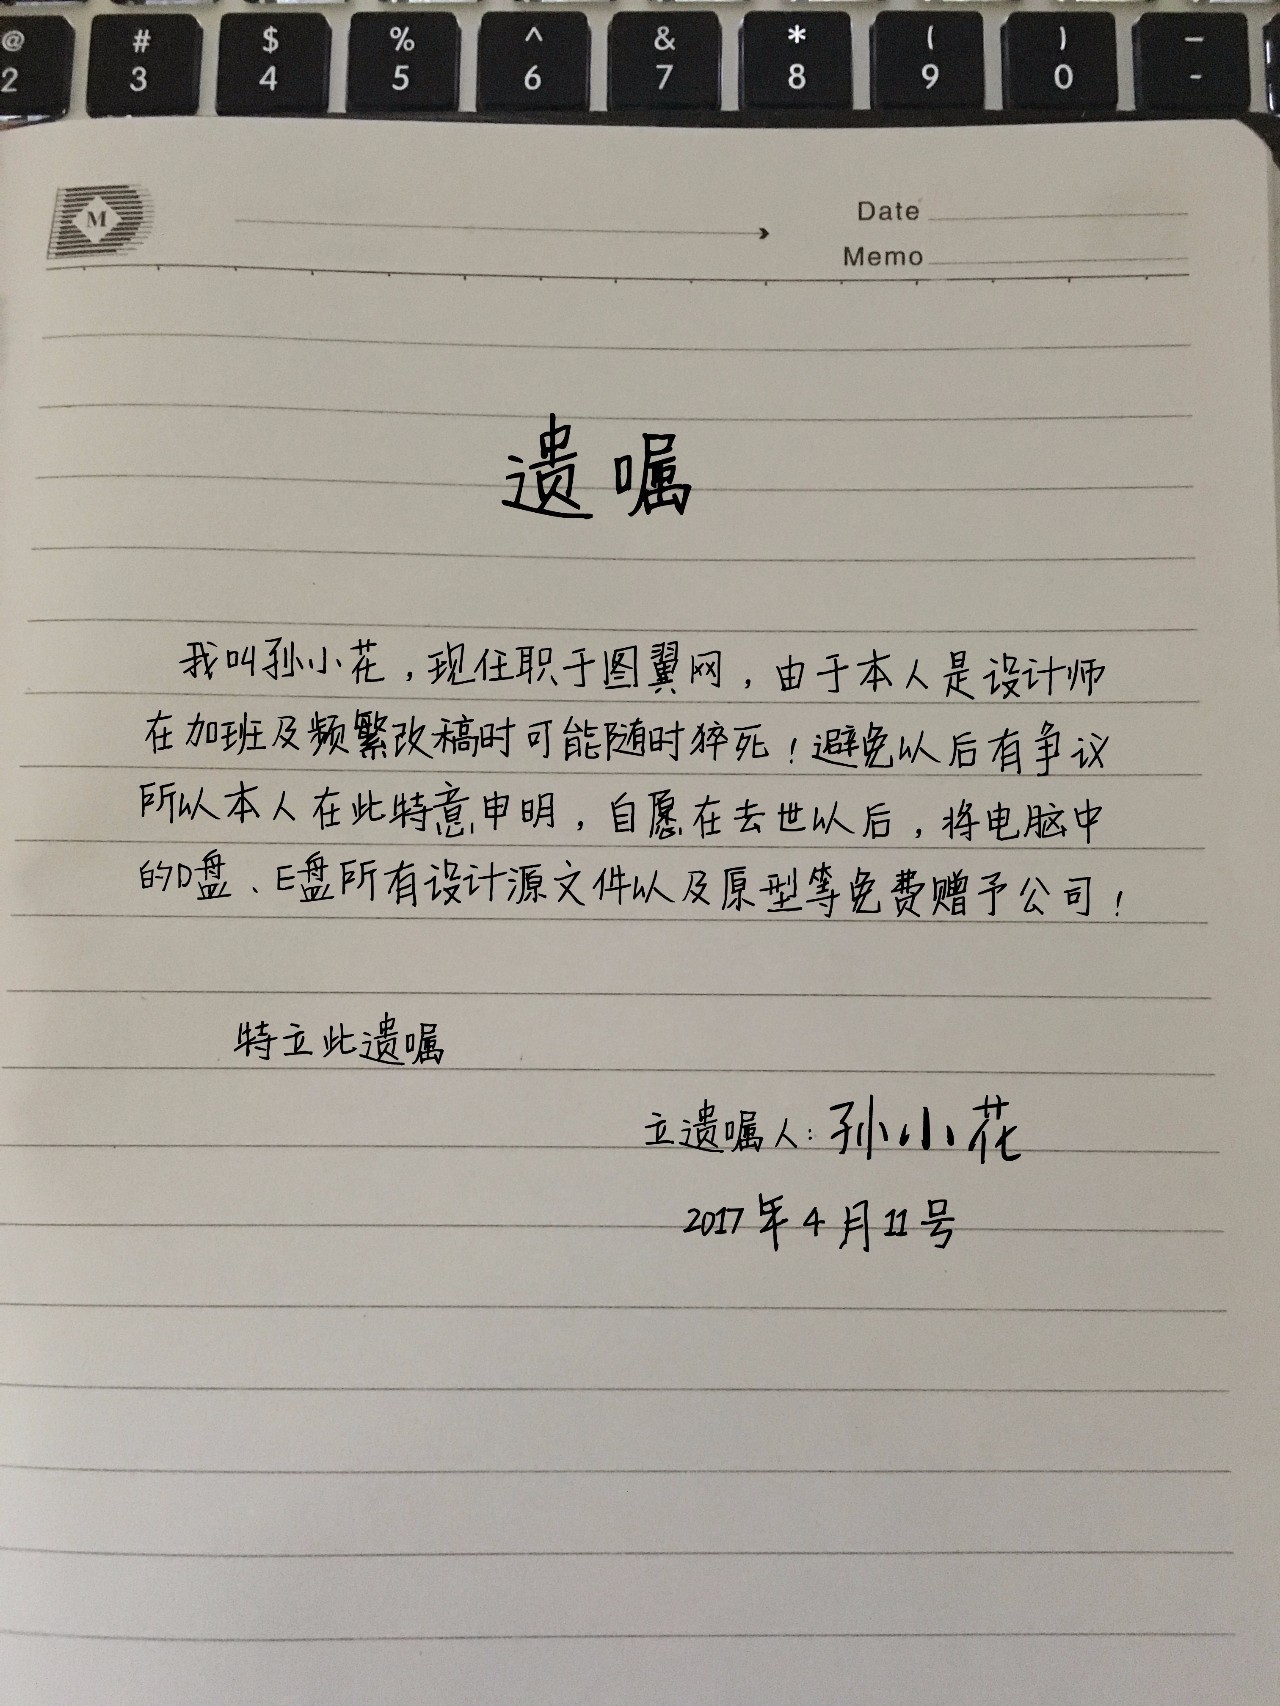 @ # $ % ^ & * ( ) _
2 3 4 5 6 7 8 9 0 -
M
Date
Memo
遗嘱
我叫孙小花，现任职于图翼网，由于本人是设计师
在加班及频繁改稿时可能随时猝死！避免以后有争议
所以本人在此特意申明，自愿在去世以后，将电脑中
的D盘、E盘所有设计源文件以及原型等免费赠予公司！
特立此遗嘱
立遗嘱人：孙小花
2017年4月11号